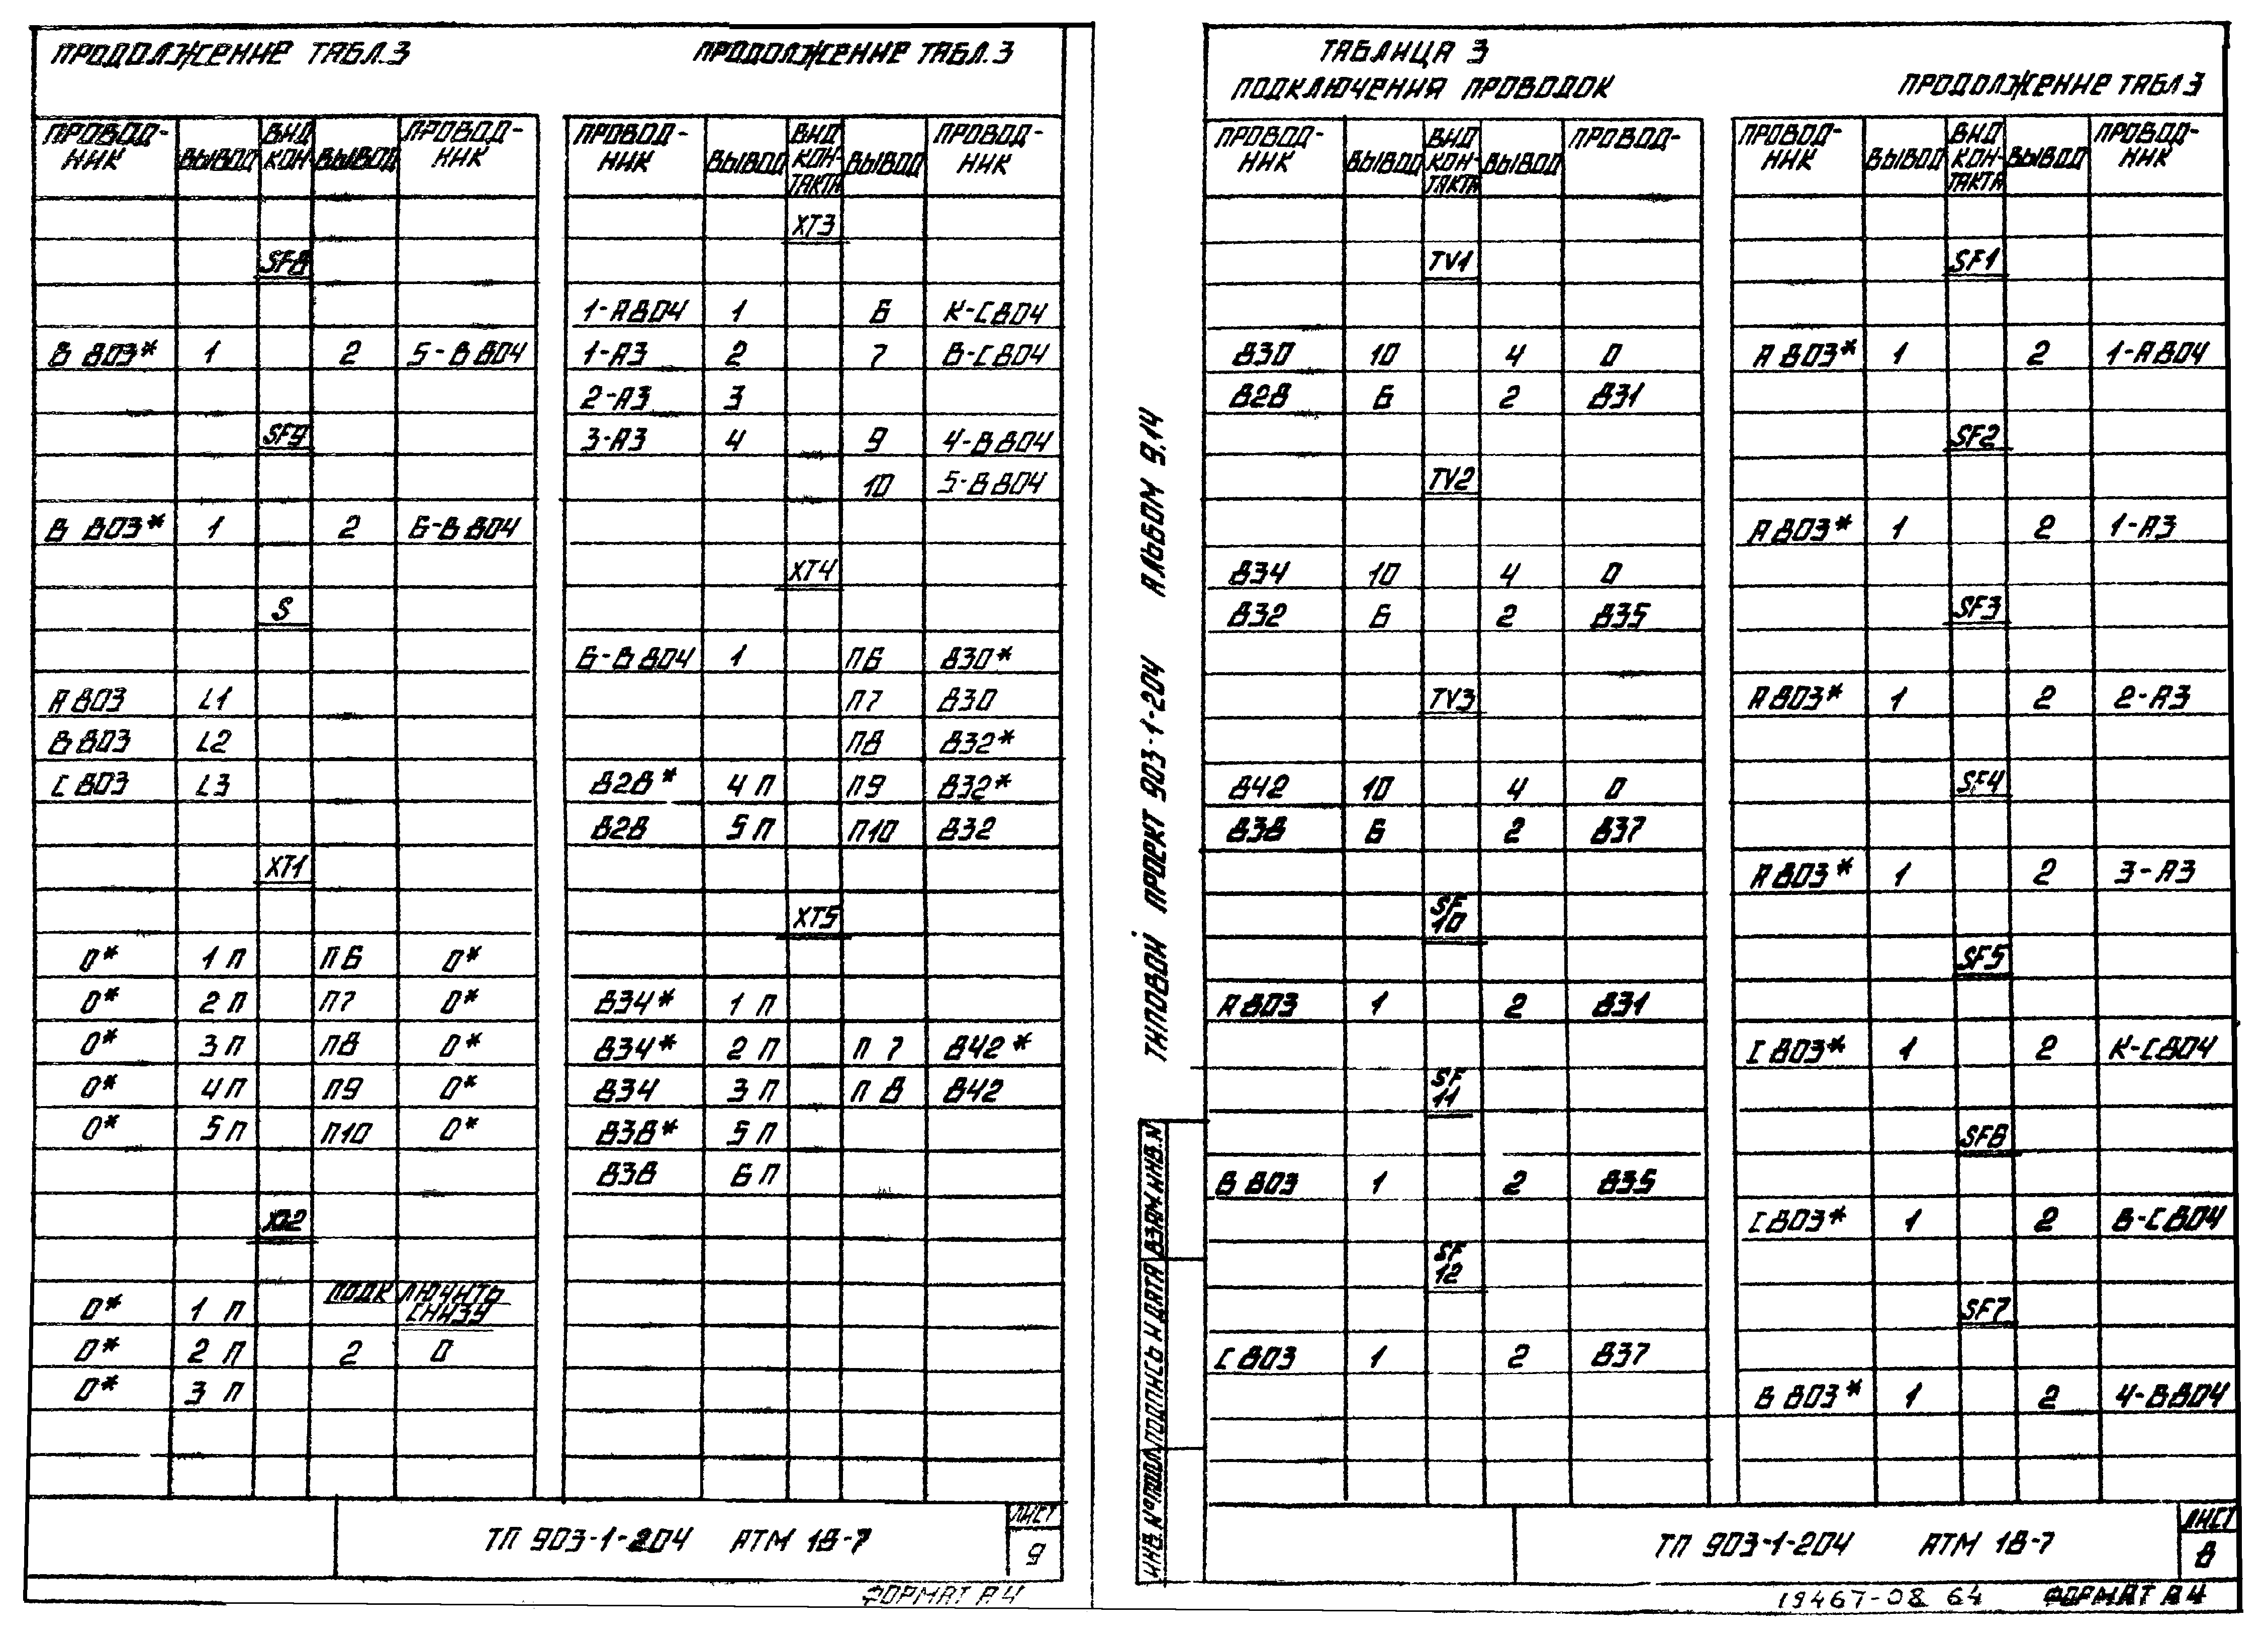 ПРОДОЛЖЕНИЕ ТАБЛ.3
ПРОВОД-НИК ВЫВОД ВИД КОН- ВЫВОД ПРОВОД-НИК
SF8
В 803* 1 2 5-В 804
SF9
В 803* 1 2 6-В 804
S
А 803 L1
В 803 L2
С 803 L3
ХТ1
0* 1 П П 6 0*
0* 2 П П7 0*
0* 3 П П8 0*
0* 4 П П9 0*
0* 5 П П10 0*
ХТ2
ПОДКЛЮЧИТЬ
СНИЗУ
0* 1 П
0* 2 П 2 0
0* 3 П
ПРОДОЛЖЕНИЕ ТАБЛ.3
ПРОВОД-НИК ВЫВОД ВИД КОН-ТАКТА ВЫВОД ПРОВОД-НИК
ХТ3
1-А804 1 6 К-С804
1-А3 2 7 В-С804
2-А3 3
3-А3 4 9 4-В804
10 5-В804
ХТ4
6-В 804 1 П6 830*
П7 830
П8 832*
828* 4 П П9 832*
828 5 П П10 832
ХТ5
834* 1 П
834* 2 П П 7 842*
834 3 П П 8 842
838* 5 П
838 6 П
ТП 903-1-204 АТМ 18-7
ЛИСТ
9
ФОРМАТ А4
АЛЬБОМ 9.14
ТИПОВОЙ ПРОЕКТ 903-1-204
ИНВ. № ПОДЛ. ПОДПИСЬ И ДАТА ВЗАМ. ИНВ. N
ТАБЛИЦА 3
ПОДКЛЮЧЕНИЯ ПРОВОДОК
ПРОВОД-НИК ВЫВОД ВИД КОН-ТАКТА ВЫВОД ПРОВОД-
TV1
830 10 4 0
828 6 2 831
TV2
834 10 4 0
832 6 2 835
TV3
842 10 4 0
838 6 2 837
SF
10
А 803 1 2 831
SF
11
В 803 1 2 835
SF
12
С 803 1 2 837
ПРОДОЛЖЕНИЕ ТАБЛ 3
ПРОВОД-НИК ВЫВОД ВИД КОН-ТАКТА ВЫВОД ПРОВОД-НИК
SF1
А 803* 1 2 1-А804
SF2
А 803* 1 2 1-А3
SF3
А 803* 1 2 2-А3
SF4
А 803* 1 2 3-А3
SF5
С 803* 1 2 К-С804
SF6
С 803* 1 2 В-С804
SF7
В 803* 1 2 4-В804
ТП 903-1-204 АТМ 18-7
ЛИСТ
8
19467-08 64 ФОРМАТ А4